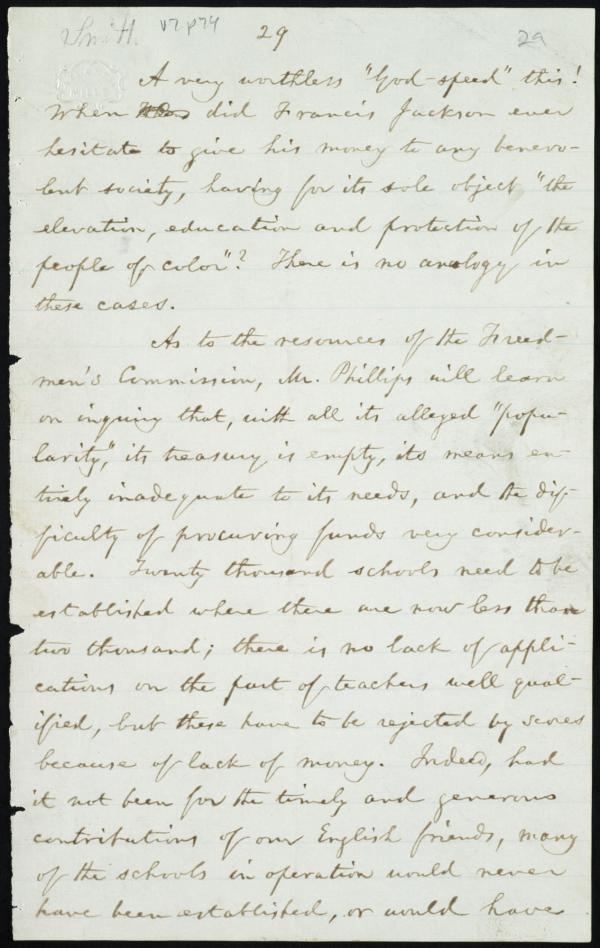 Smith. v7 p74 29 29
A very worthless "God-speed" this!
When did Francis Jackson ever
hesitate to give his money to any benevo-
lent society, having for its sole object "the
elevation, education and protection of the
people of color"? There is no analogy in
these cases.
As to the resources of the Freed-
men's Commission, Mr. Phillips will learn
on inquiry that, with all its alleged "popu-
larity," its treasury is empty, its means en-
tirely inadequate to its needs, and the dif-
ficulty of procuring funds very consider-
able. Twenty thousand schools need to be
established where there are now less than
two thousand; there is no lack of appli-
cations on the part of teachers well qual-
ified, but these have to be rejected by scores
because of lack of money. Indeed, had
it not been for the timely and generous
contributions of our English friends, many
of the schools in operation would never
have been established, or would have